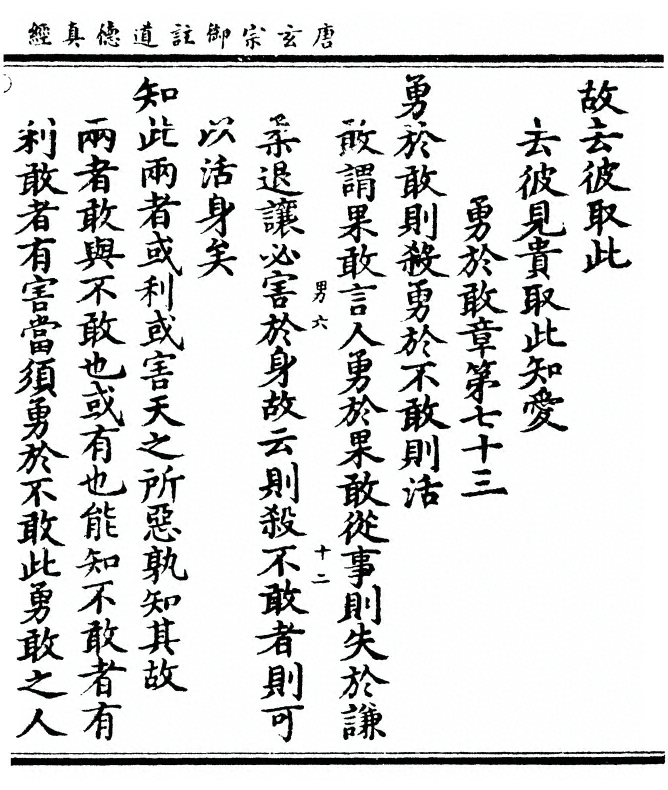 唐玄宗御註道德真經
故去彼取此
去彼見貴取此知愛
勇於敢章第七十三
勇於敢則殺勇於不敢則活
敢謂果敢言人勇於果敢從事則失於謙
男六
十二
柔退讓必害於身故云則殺不敢者則可
以活身矣
知此兩者或利或害天之所惡孰知其故
兩者敢與不敢也或有也能知不敢者有
利敢者有害當須勇於不敢此勇敢之人